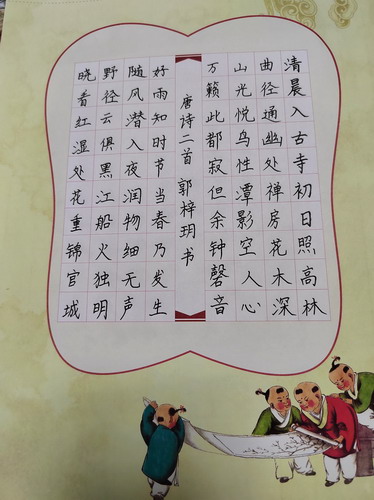 清晨入古寺初日照高林
曲径通幽处禅房花木深
山光悦鸟性潭影空人心
万籁此都寂但余钟磬音
唐诗二首 郭梓玥书
好雨知时节当春乃发生
随风潜入夜润物细无声
野径云俱黑江船火独明
晓看红湿处花重锦官城